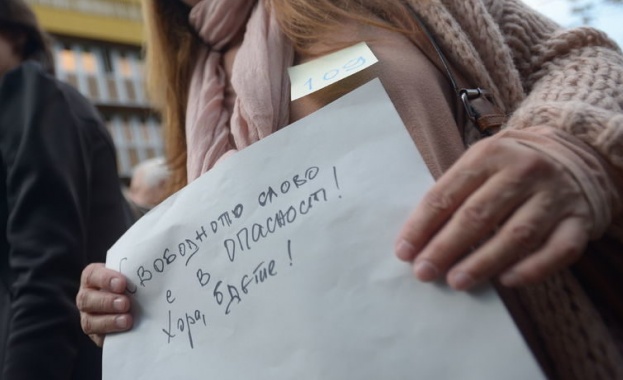 109
Свободното слово
е в опасност!
Хора, бдете!